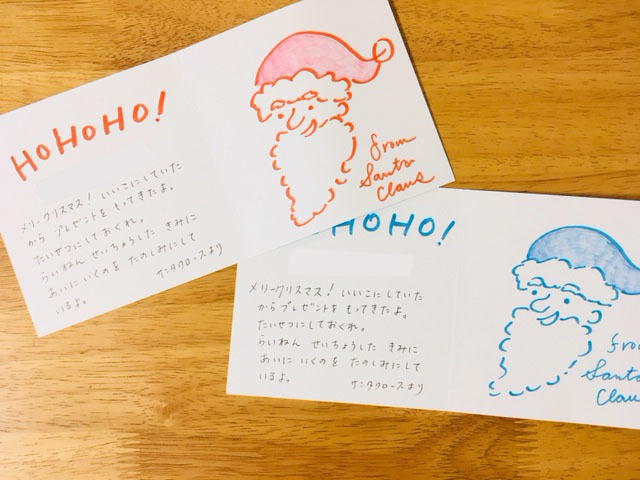 HOHOHO!
メリークリスマス! いいこにしていた
から プレゼントを もってきたよ。
たいせつにしておくれ。
らいねん せいちょうした きみに
あいに いくのを たのしみにして
いるよ。
サンタクロースより
from
Santa
Claus
HOHO!
メリークリスマス! いいこにしていた
からプレゼントを もってきたよ。
たいせつにしておくれ。
らいねん せいちょうした きみに
あいに いくのを たのしみにして
いるよ。
サンタクロースより
from
Santa
Claus